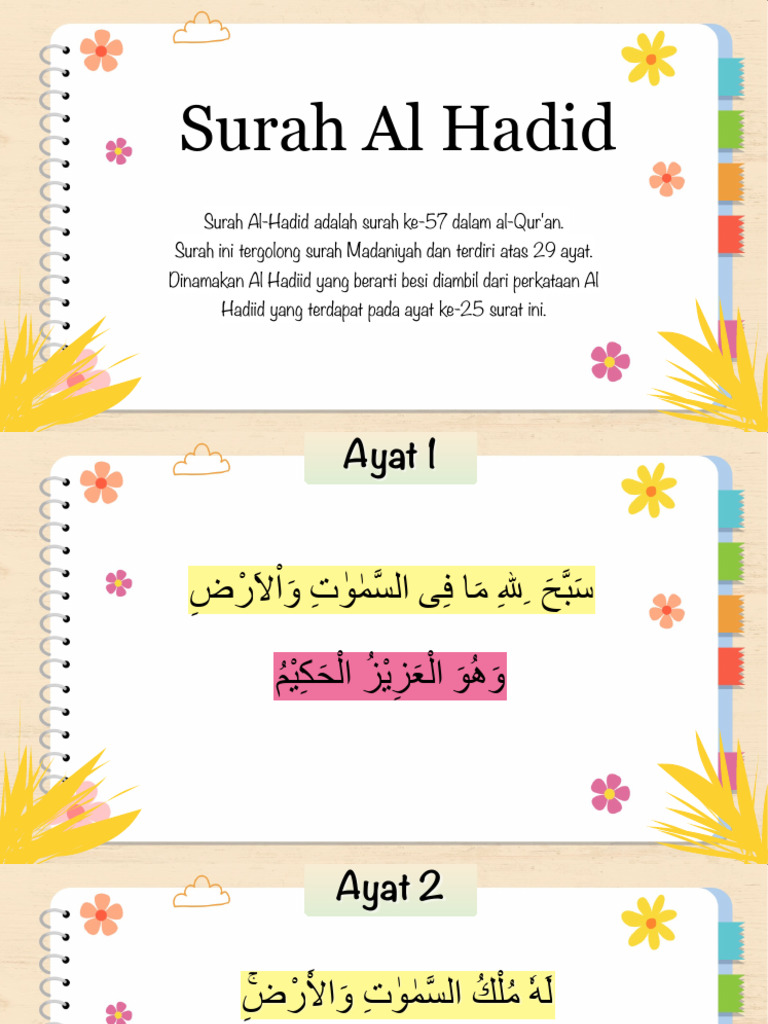 Surah Al Hadid
Surah Al-Hadid adalah surah ke-57 dalam al-Qur'an.
Surah ini tergolong surah Madaniyah dan terdiri atas 29 ayat.
Dinamakan Al Hadiid yang berarti besi diambil dari perkataan Al
Hadiid yang terdapat pada ayat ke-25 surat ini.
Ayat 1
سَبَّحَ لِلّٰهِ مَا فِى السَّمٰوٰتِ وَالْاَرْضِ
وَهُوَ الْعَزِيْزُ الْحَكِيْمُ
Ayat 2
لَهٗ مُلْكُ السَّمٰوٰتِ وَالْأَرْضِۚ